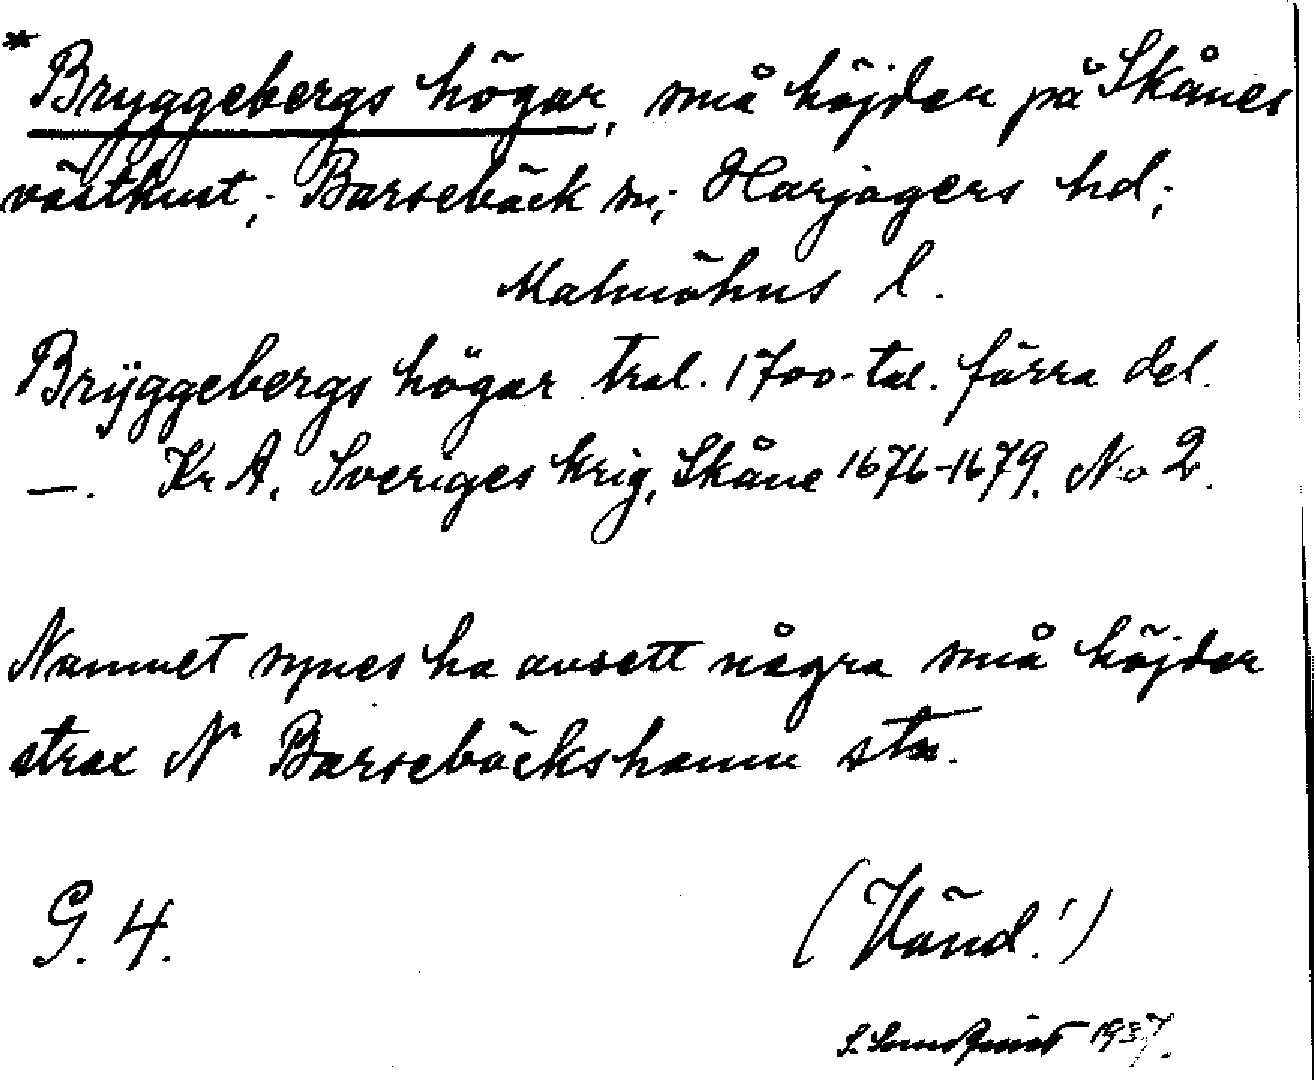 * Bryggebergs högar, små höjder på Skånes
västkust; Barsebäck sn; Harjagers hd;
Malmöhus l.
Brÿggebergs högar trol. 1700-tal. förra del.
—. Kr A. Sveriges krig, Skåne 1676-1679. No 2.
Namnet synes ha avsett några små höjder
strax N Barsebäckshamn stn.
G. 4.
(Vänd!)
1937.